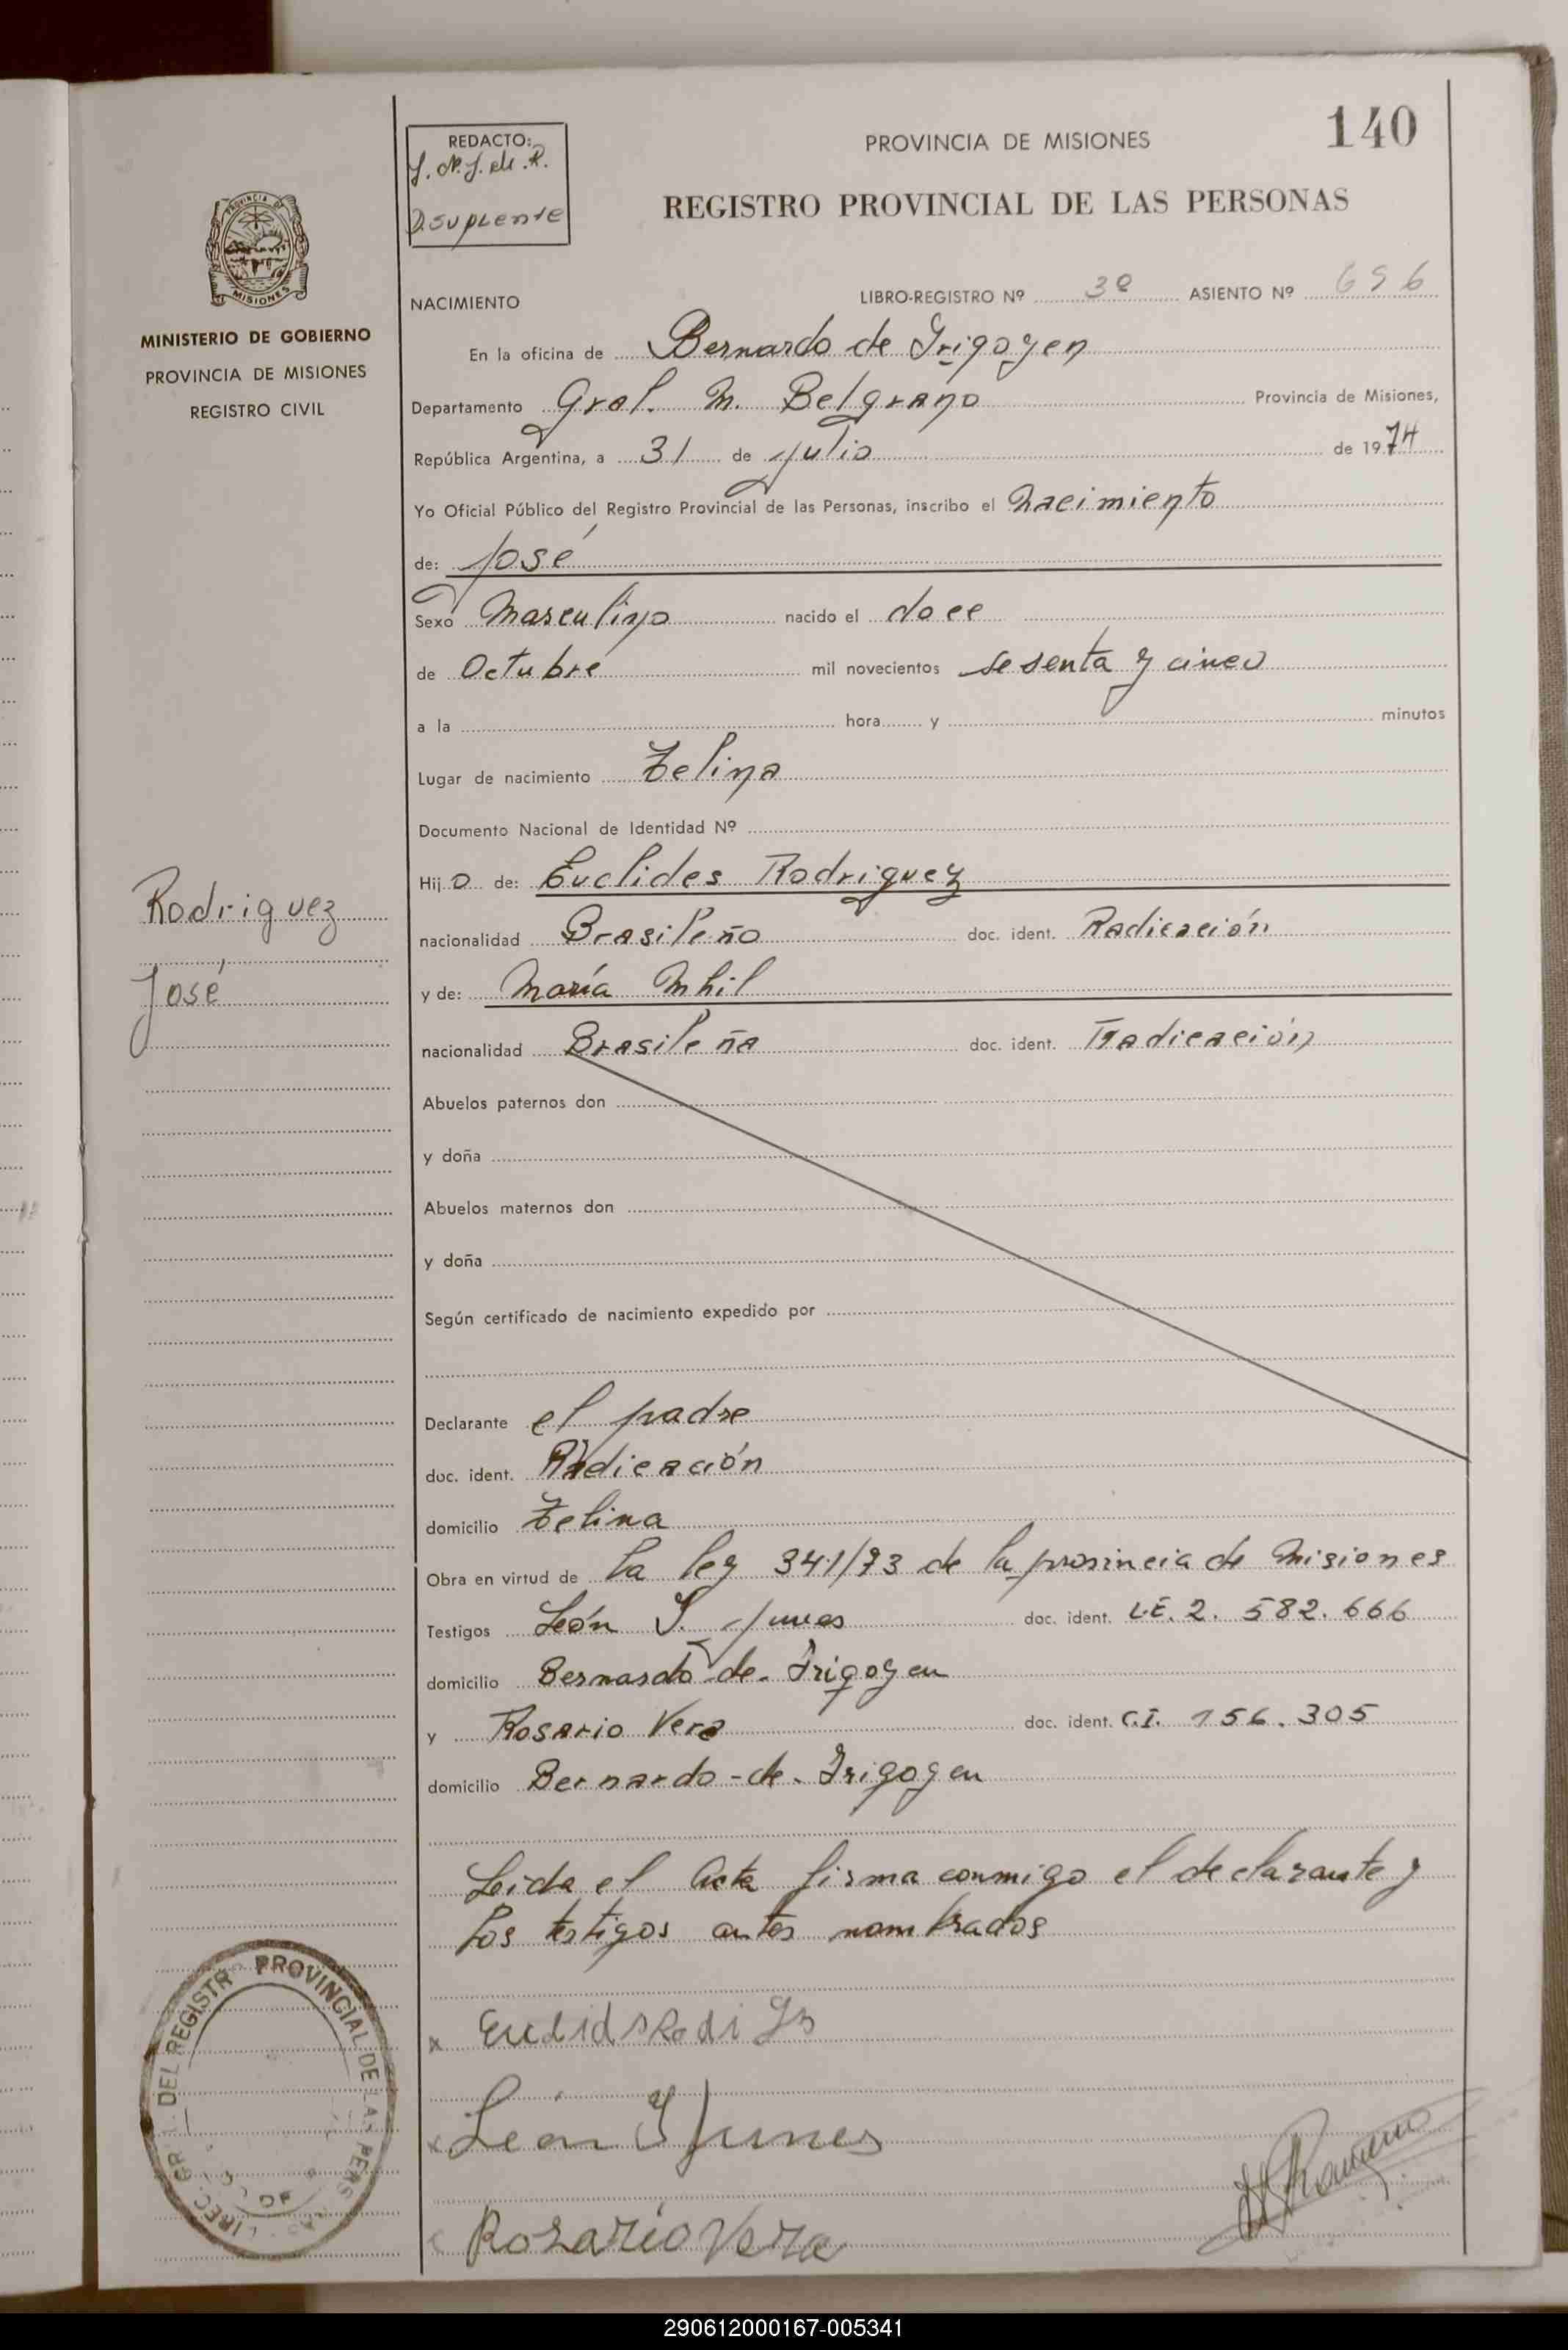 140
REDACTO:
D. suplente
PROVINCIA DE MISIONES
REGISTRO PROVINCIAL DE LAS PERSONAS
PROVINCIA DE
MISIONES
MINISTERIO DE GOBIERNO
PROVINCIA DE MISIONES
REGISTRO CIVIL
NACIMIENTO LIBRO-REGISTRO Nº 3º ASIENTO Nº 696
En la oficina de Bernardo de Irigoyen
Departamento Gral. M. Belgrano Provincia de Misiones,
República Argentina, a 31 de julio de 1974
Yo Oficial Público del Registro Provincial de las Personas, inscribo el Nacimiento
de: José
Sexo Masculino nacido el doce
de Octubre mil novecientos sesenta y cinco
a la hora y minutos
Lugar de nacimiento Zelina
Documento Nacional de Identidad Nº
Hijo de: Euclides Rodriguez
nacionalidad Brasileño doc. ident. Radicación
y de: María Mhil
nacionalidad Brasileña doc. ident. Radicación
Rodriguez
José
Abuelos paternos don
y doña
Abuelos maternos don
y doña
Según certificado de nacimiento expedido por
Declarante el padre
doc. ident. Radicación
domicilio Zelina
Obra en virtud de la ley 341/73 de la provincia de Misiones
Testigos León I. Junes doc. ident. L.E. 2.582.666
domicilio Bernardo-de-Irigoyen
y Rosario Vera doc. ident. C.I. 156.305
domicilio Bernardo-de-Irigoyen
Leida el Acta firma conmigo el declarante y
los testigos antes nombrados
León I Junes
Rosario Vera
DEL REGISTRO PROVINCIAL DE LAS PERS
290612000167-005341